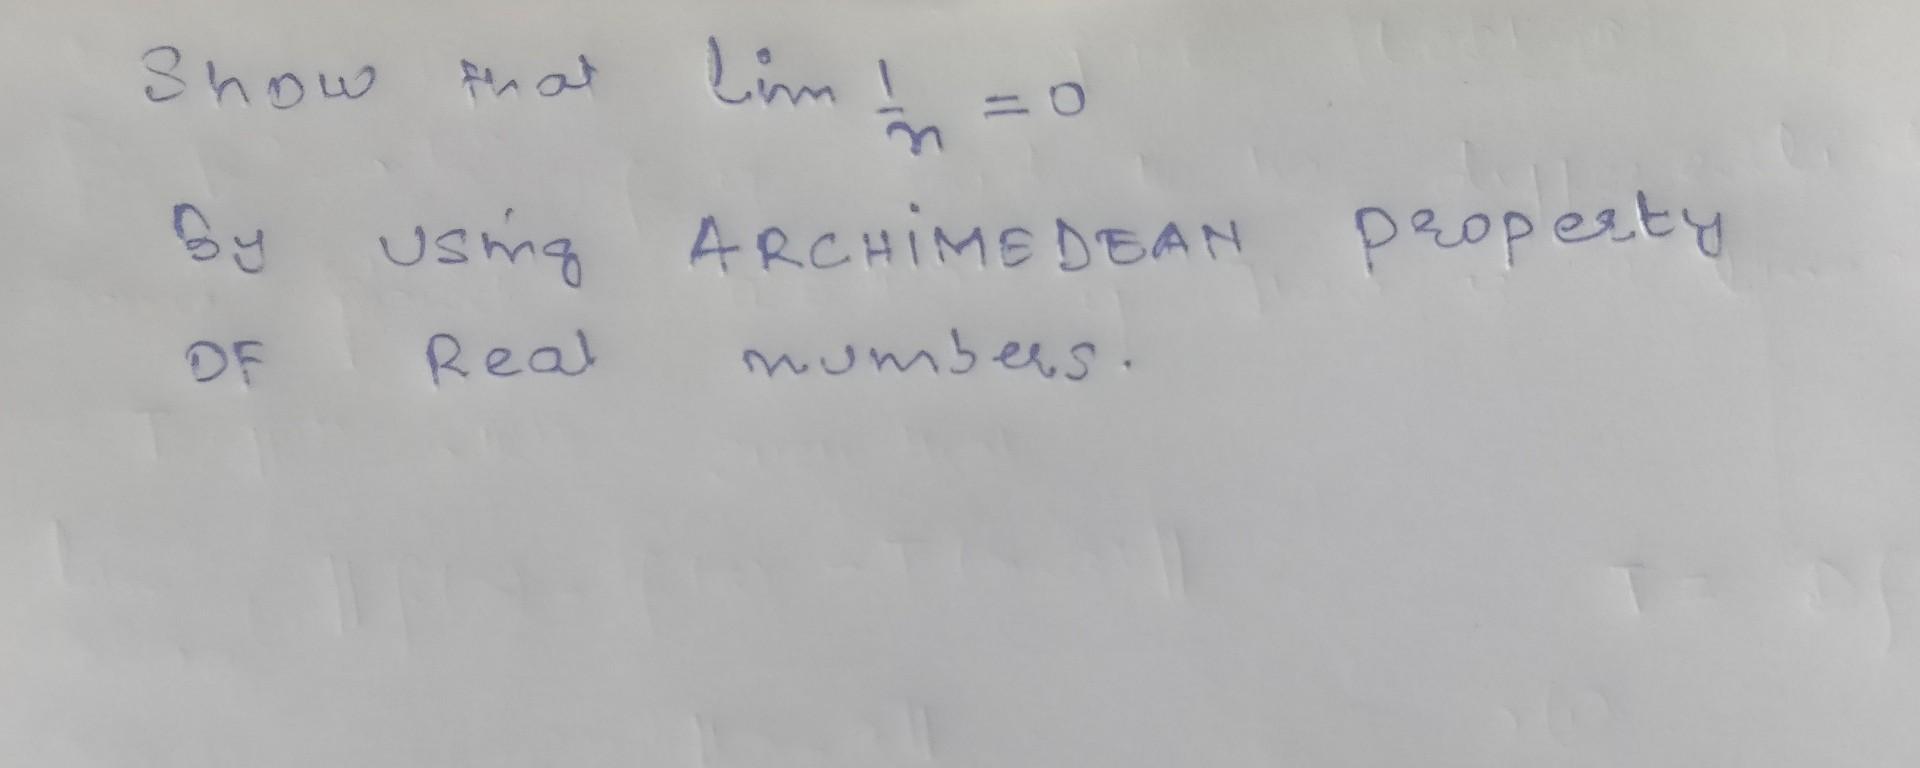 Show that lim 1/n = 0
By using ARCHIMEDEAN property
OF Real numbers.